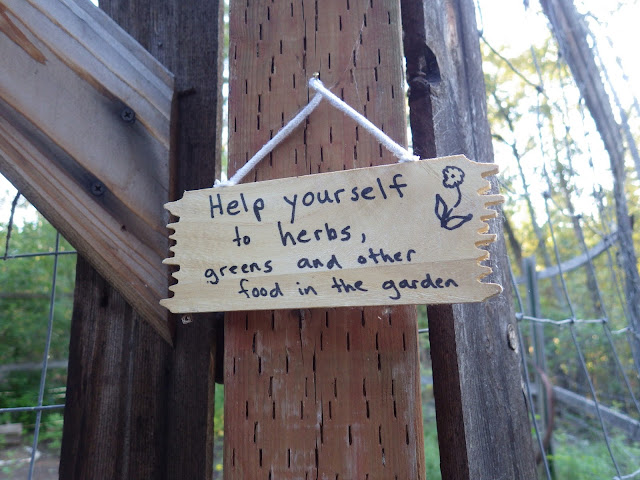 Help yourself
to herbs,
greens and other
food in the garden